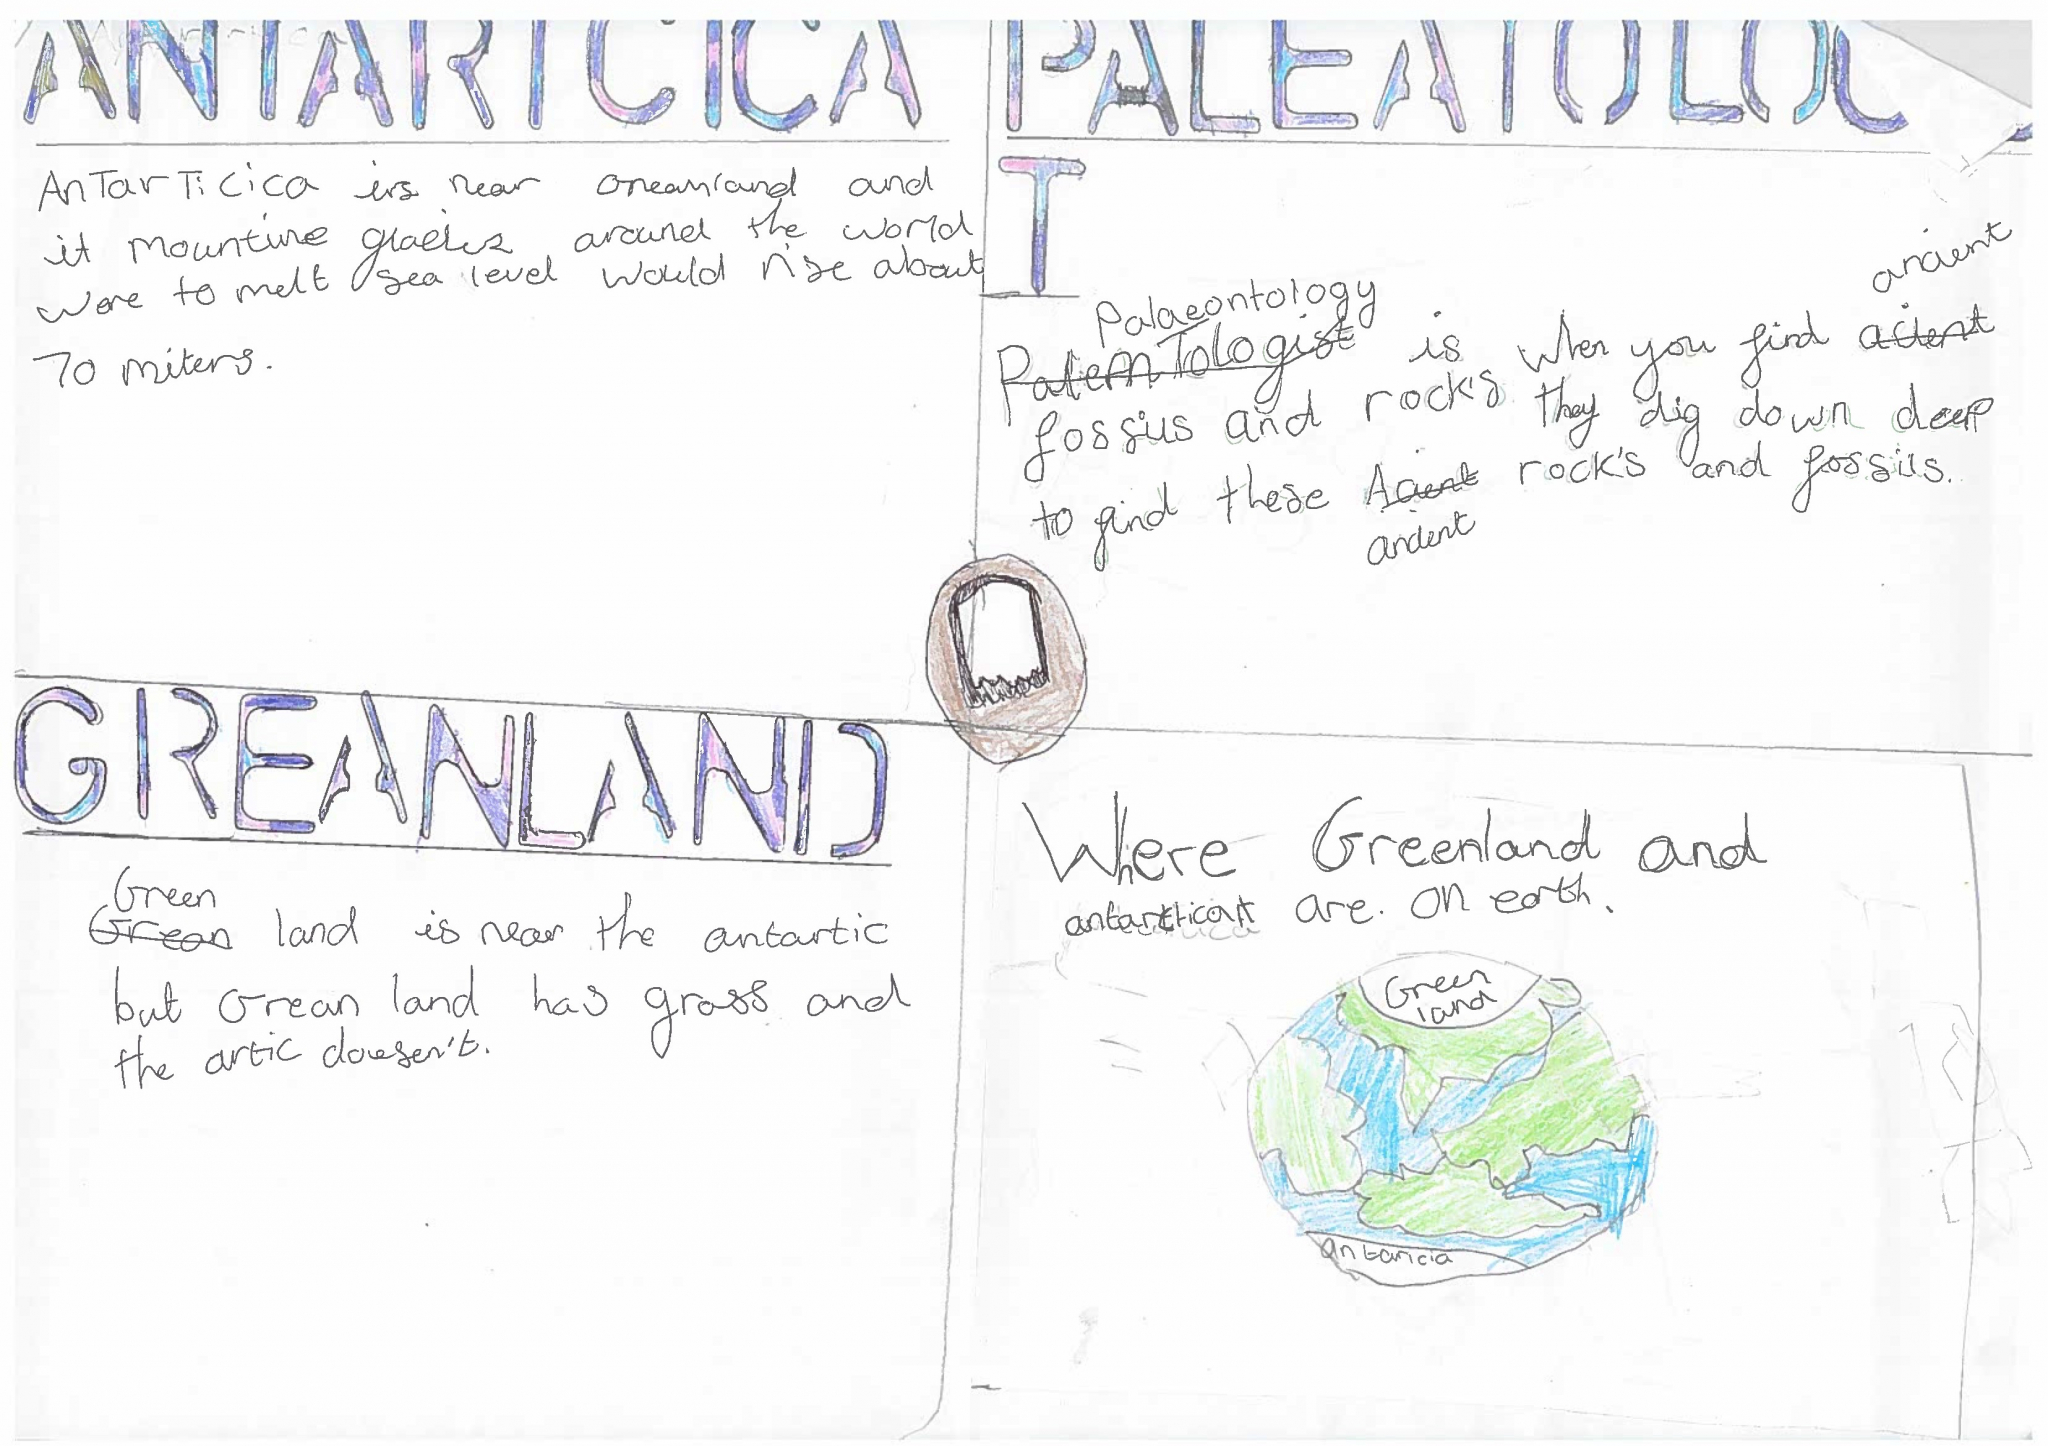 ANTARTCICA
AnTarTicica is near Greanland and
it mountine glacies around the world
were to melt sea level would rise about
70 miters.
PALEATOLOG
T
ancient
Palaeontology
PalemTologist is when you find acient
fossils and rock's they dig down deep
to find these Acient rock's and fossils.
ancient
GREANLAND
Green
Grean land is near the antartic
but Grean land has grass and
the artic dowsen't.
Where Greenland and
are. on earth.
Green
land
antarcia